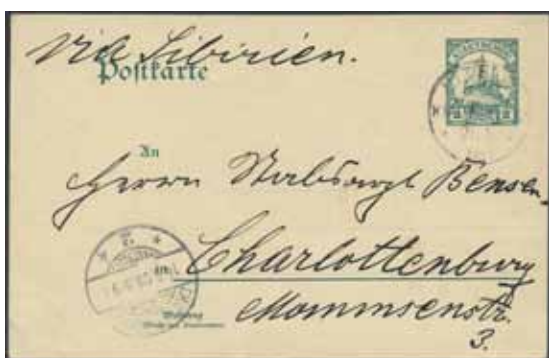 via Sibirien.
Postkarte
KIAUTSCHOU
An
Herrn Stabsarzt Bensen
Charlottenburg
Mommsenstr.
3.